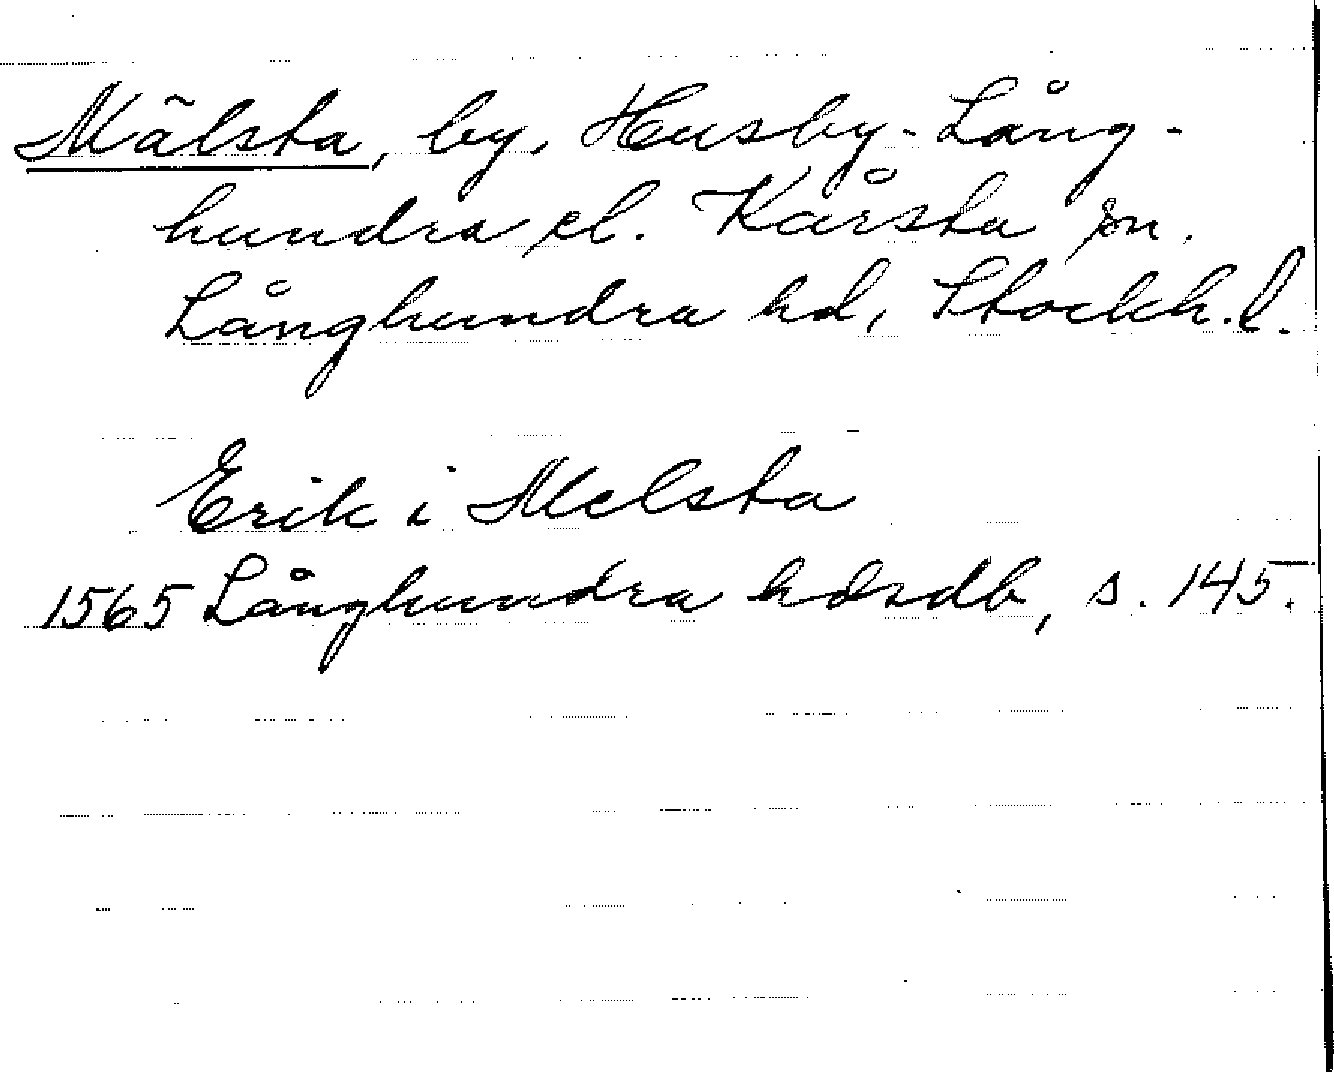 Mälsta, by, Husby-Lång-
hundra el. Kårsta sn.
Långhundra hd, Stockh. l.
Erik i Melsta
1565 Långhundra hdsdb, s. 145.